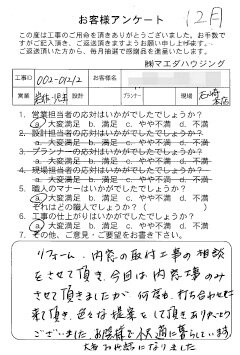 お客様アンケート
12月
この度は工事のご用命を頂きありがとうございました。お手数で
すがご記入頂き、ご返送頂きますようお願い申し上げます。
ご返送頂いた方から、毎月抽選で感謝品を進呈いたします。
㈱マエダハウジング
工事ID 002-0121/2 お客様名
営業 設計 プランナー 現場
1. 営業担当者の応対はいかがでしたでしょうか?
a 大変満足 b 満足 c やや不満 d 不満
2. 設計担当者の応対はいかがでしたでしょうか?
a 大変満足 b 満足 c やや不満 d 不満
3. プランナーの応対はいかがでしたでしょうか?
a 大変満足 b 満足 c やや不満 d 不満
4. 現場担当者の応対はいかがでしたでしょうか?
a 大変満足 b 満足 c やや不満 d 不満
5. 職人のマナーはいかがでしたでしょうか?
a 大変満足 b 満足 c やや不満 d 不満
それはどの職人でしょうか(
6. 工事の仕上がりはいかがでしたでしょうか?
a 大変満足 b 満足 c やや不満 d 不満
7. その他、ご意見・ご要望をお書き下さい。
リフォーム、内窓の取付工事の相談
をさせて頂き、今回は内窓工事のみ
させて頂きましたが 何度も、打ち合わせに
来て頂き、色々な提案をして頂きありがとう
ございました。お陰様で快適に暮らしています。
大変お世話になりました